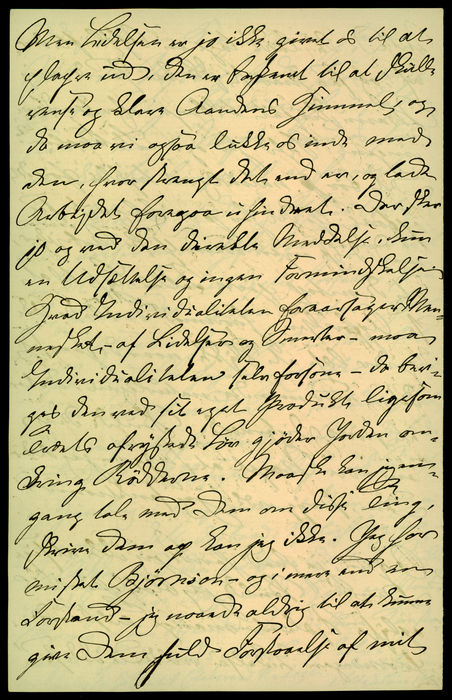 Men Lidelsen er jo ikke givet os til at
flagre ud, den er bestemt til at skulle
rense og klare Aandens Himmel, og
da maa vi ogsaa lukke os inde med
den, hvor strengt det end er, og lade
Arbejdet foregaa uhindret. Der sker
jo og ved den direkte Meddelse, kun
en Udsættelse og ingen Formindskelse.
Hvad Individualiteten foraarsager Men-
nesket - af Lidelser og Smerter - maa
Individualiteten selv forsone - da beri-
ges den ved sit eget Produkt ligesom
Træets afrystede Løv gjøder Jorden om-
kring Rødderne. Maaske kan jeg en-
gang tale med Dem om disse Ting,
skrive dem op kan jeg ikke. Jeg har
mistet Bjørnson - og i mere end en
Forstand - jeg naaede aldrig til at kunne
give Dem fuld Forstaaelse af mit